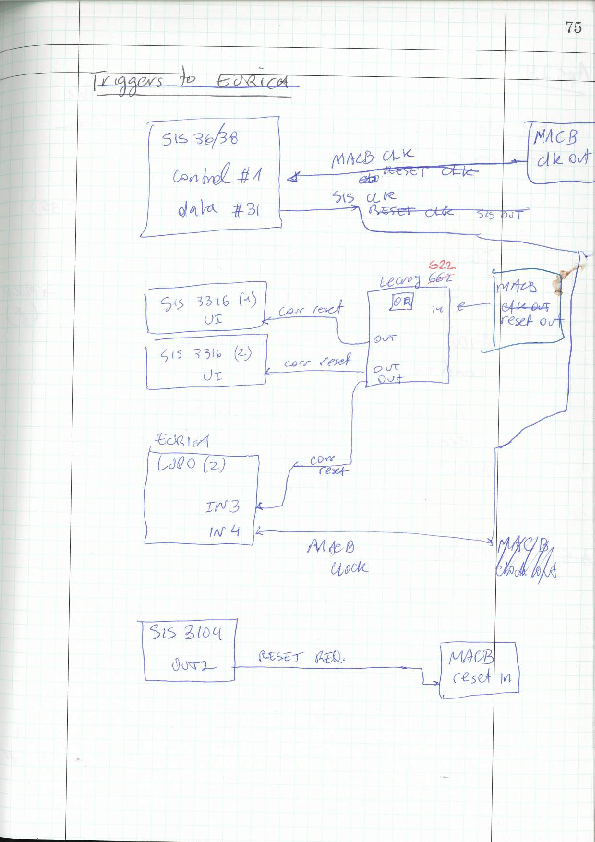 75
Triggers to EURICA
SIS 36/38
control #1
data #31
MACB CLK
RESET CLK
SIS CLK
RESET CLK SIS OUT
MACB
clk out
SIS 3316 (1)
UI
corr reset
SIS 3316 (2)
UI
corr reset
Lecroy 622
OR
IN
OUT
OUT
OUT
MACB
clk out
reset out
EURICA
LUPO (2)
IN3
IN4
corr
reset
MACB
clock
MACB
clock out
SIS 3104
OUT2
RESET REQ.
MACB
reset in